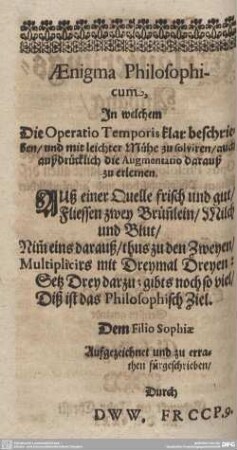 Ænigma Philosophi-
cum,
In welchem
Die Operatio Temporis klar beschrie-
ben/ und mit leichter Mühe zu solviren/ auch
außdrücklich die Augmentatio darauß
zu erlernen.
Auß einer Quelle frisch und gut/
Fliessen zwey Brüñlein/ Milch
und Blut/
Nim eins darauß/ thus zu den Zweyen/
Multiplicirs mit Dreymal Dreyen:
Setz Drey darzu: gibts noch so viel/
Diß ist das Philosophisch Ziel.
Dem Filio Sophiæ
Aufgezeichnet und zu erra-
then fürgeschrieben/
Durch
D W W. FR CCP. 9.